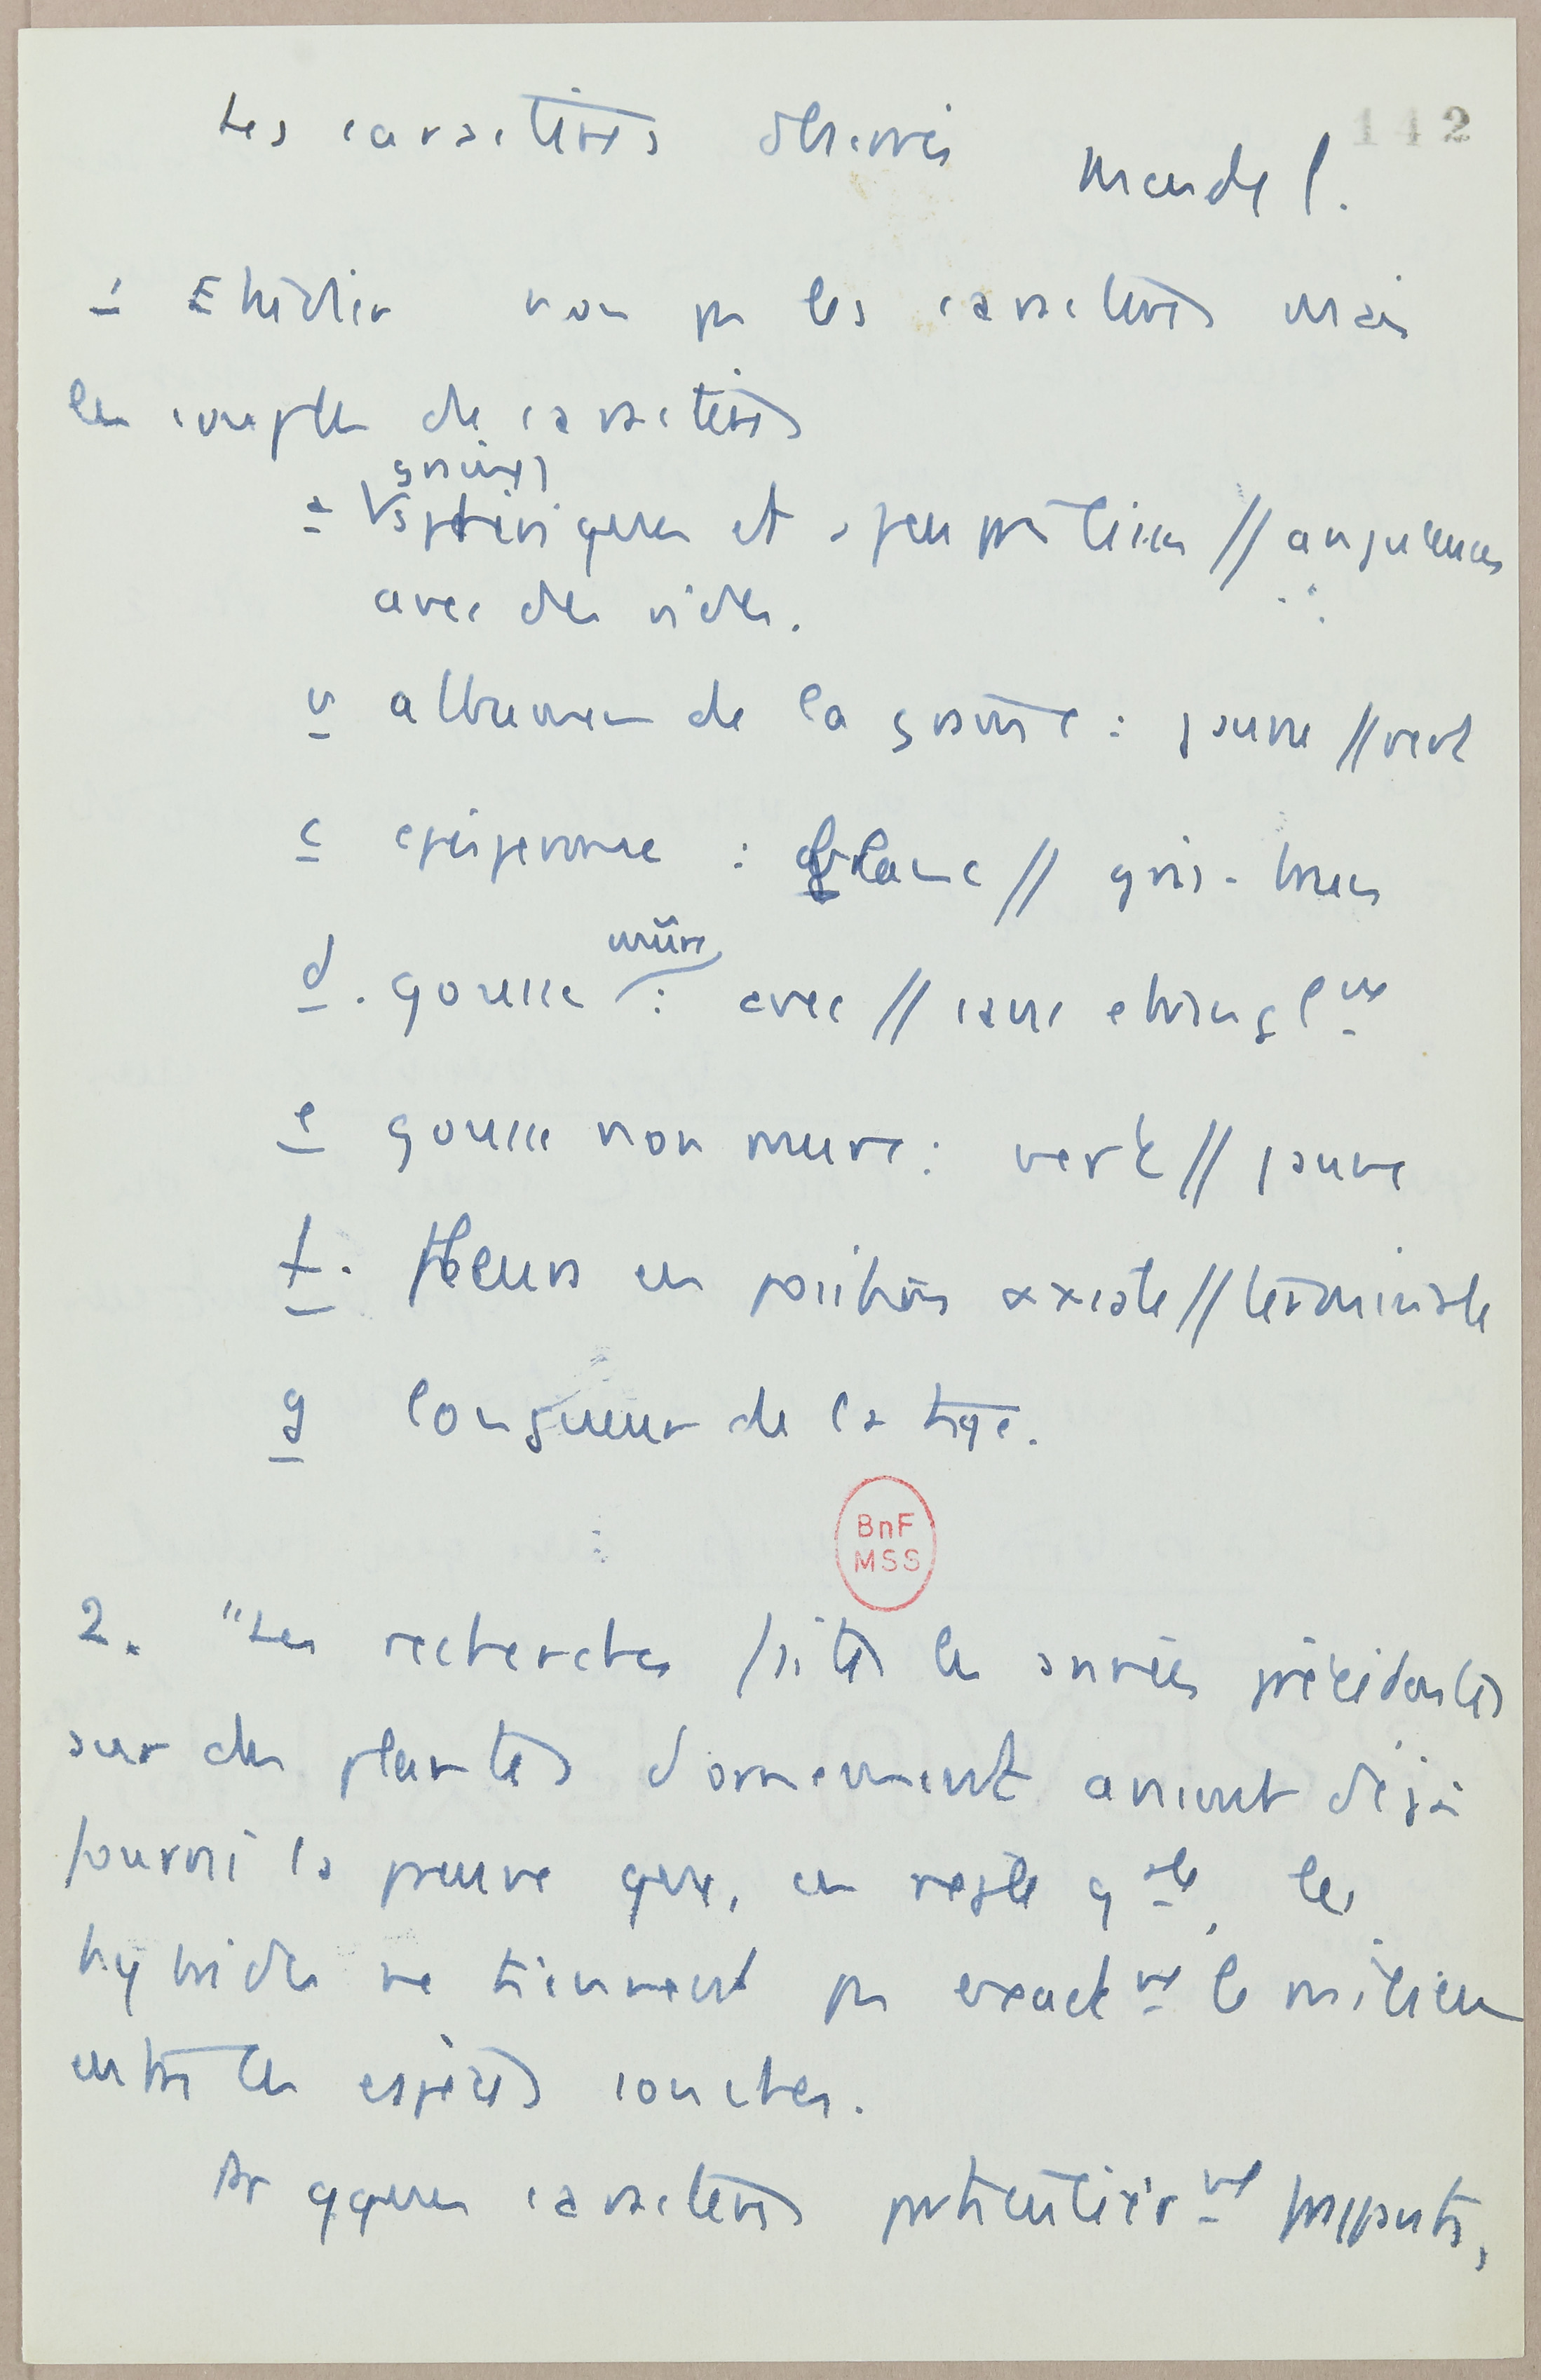 142
Les caractères observés
Mendel.
1 Etudier non pas les caractères mais
les couples de caractères
graines
a sphériques et régulières // anguleuses
avec des rides.
b albumen de la graine : jaune // vert
c épisperme : blanc // gris-brun
mûre
d. gousse : avec // sans étrangl nt
e gousse non mure : verte // jaune
f. fleurs en position axiale // terminale
g longueur de la tige.
BnF
MSS
2. "Les recherches faites les années précédentes
sur des plantes d'ornement avaient déjà
fourni la preuve que, en règle g ale, les
hybrides ne tiennent pas exact nt le milieu
entre les espèces souches.
Pr qques caractères particulièr nt frappants,